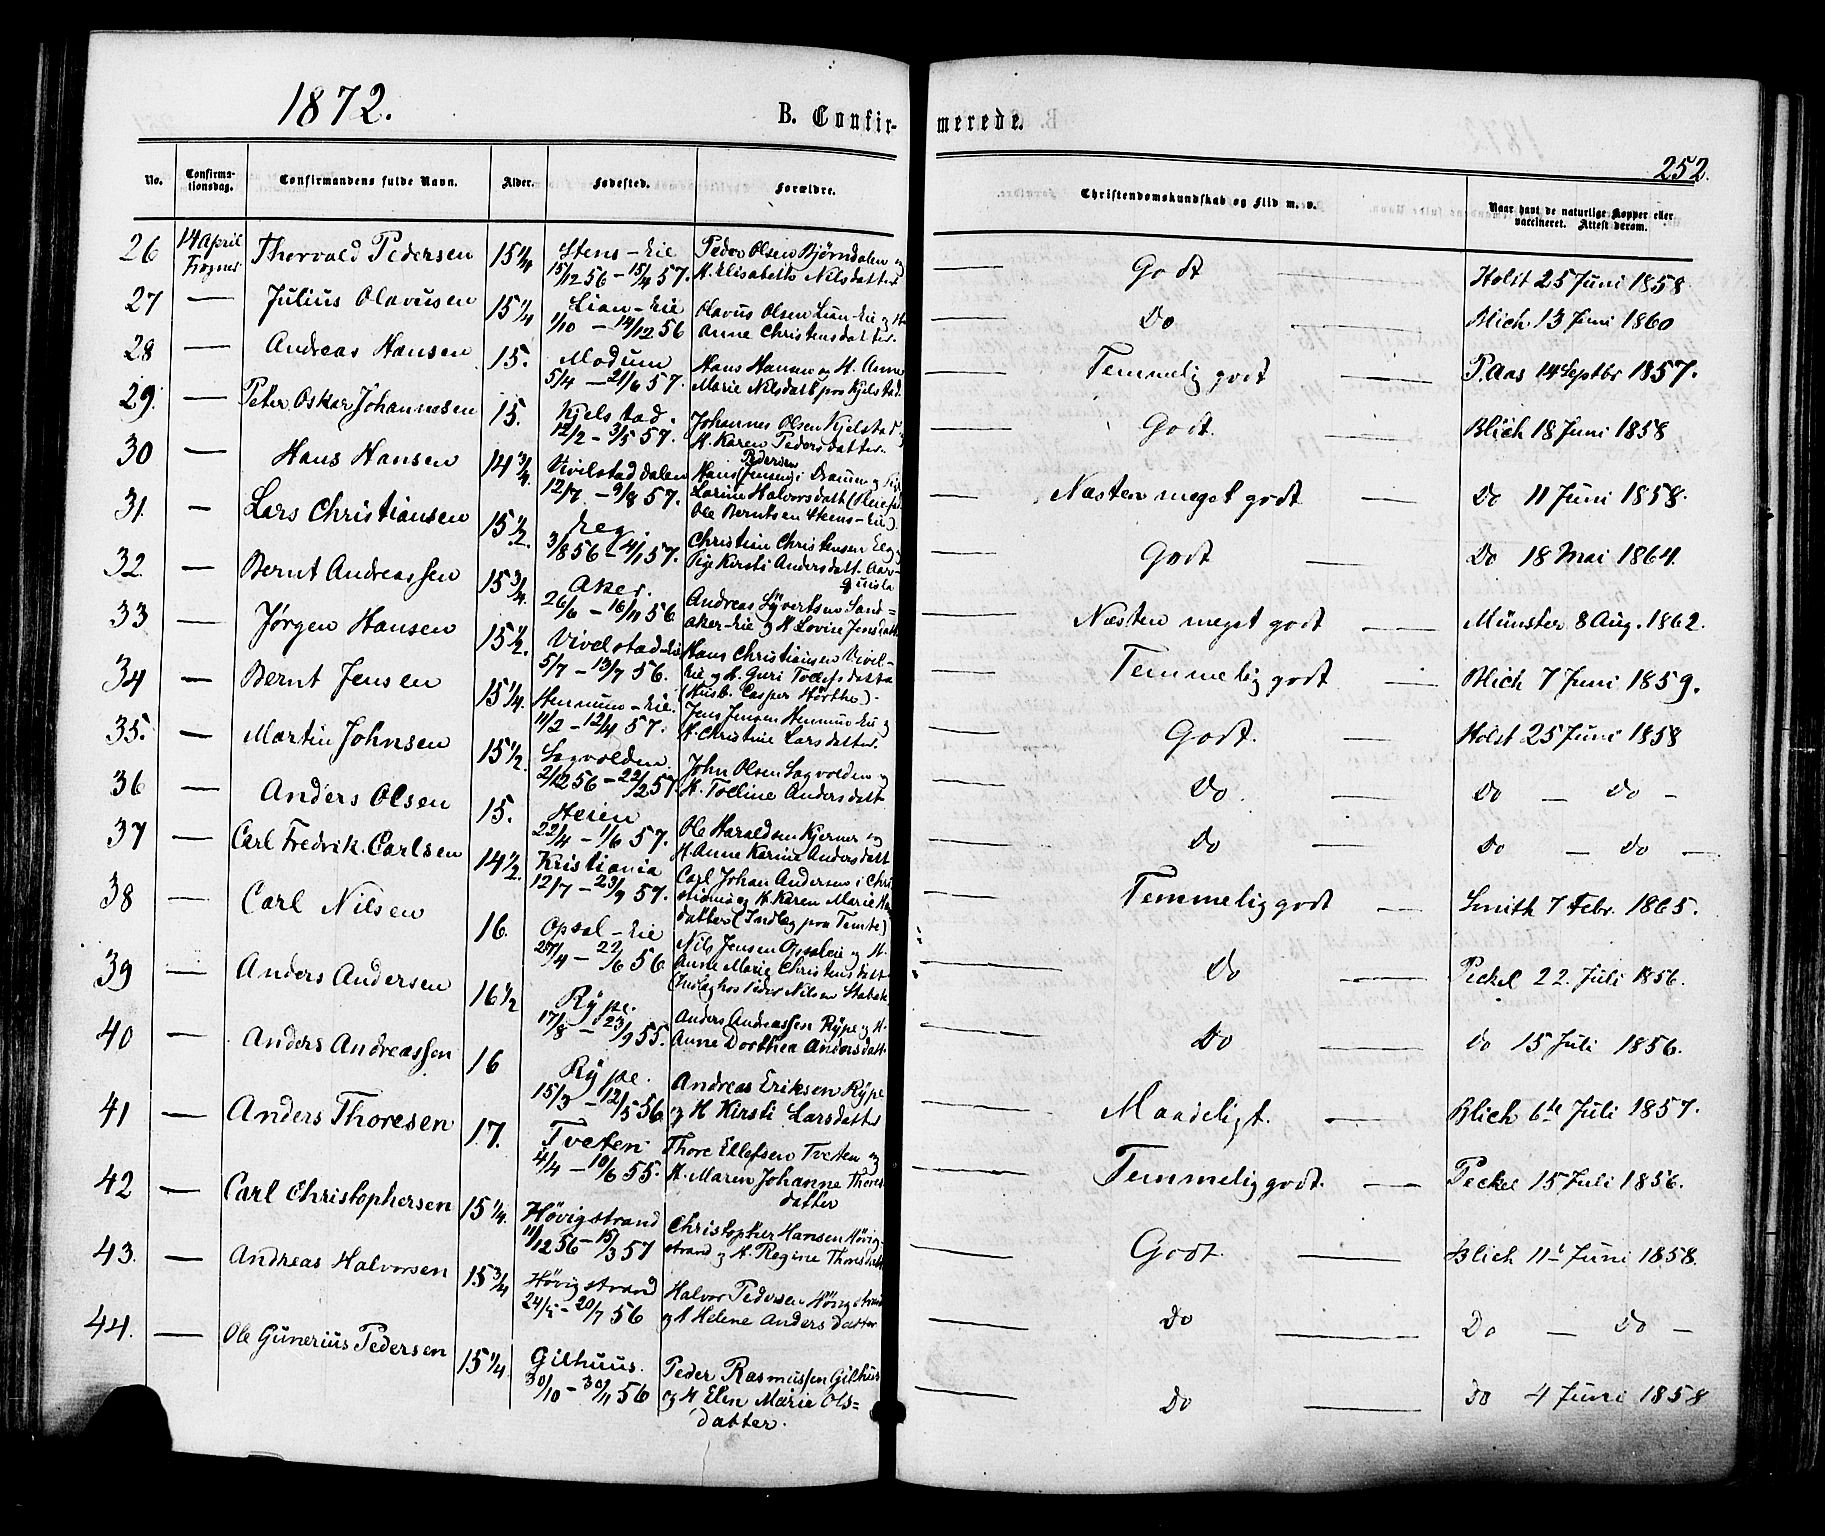 1872.
B. Confir-
merede.
252.
No.
Confirma-
tionsdag.
Confirmandens fulde Navn.
Alder.
Fødested.
Forældre.
Christendomskundskab og Flid m. v.
Naar havt de naturlige Kopper eller
vaccineret. Attest derom.
26 14 April Thorvald Pedersen 15 1/4 Stens-Eie Peder Olsen Bjørndalen og
Frogner 15/12 56 — 15/4 57. H. Elisabeth Nilsdatter — Godt — Holst 25 Juni 1858
27 — Julius Olavusen 15 1/4 Lian-Eie Olavus Olsen Lian-Eie og H.
1/10 — 14/12 56 Anne Christensdatter. — Do — Blich 13 Juni 1860
28 — Andreas Hansen 15. Modum Hans Hansen og H. Anne
5/4 — 21/6 57. Marie Nilsdatt. pva Kjelstad. — Temmelig godt — P. Aas 14 Septbr 1857.
29. — Peter Oskar Johannesen 15. Kjelstad. Johannes Olsen Kjelstad og
12/2 — 3/5 57. H. Karen Pedersdatter. — Godt. — Blich 18 Juni 1858
30 — Hans Hansen 14 3/4 Vivelstaddalen Hans Pedersen (Jensen) i Dramm. og Pige
12/7 — 9/8 57. Larine Halvorsdatt
Ole Berntsen Steens-Eie). — Næsten meget godt — Do 11 Juni 1858.
31. — Lars Christiansen 15 1/2. Eeg. Christian Christensen Eeg og
3/8 56 — 4/1 57. Pige Kirsti Andersdatt. — Godt — Do 18 Mai 1864.
32. — Bernt Andreassen 15 3/4. Aker. Andreas Syvertsen Sand-
26/6 — 16/11 56 aker-Eie og H. Lovise Jensdatt. — Næsten meget godt — Münster 8 Aug. 1862.
33 — Jørgen Hansen 15 1/2. Vivelstad-Eie Hans Christiansen Vivel-
5/7 — 13/7 56. Eie og H. Guri Tollefsdatter
(Husb. Casper Hørthe). — Temmelig godt — Blich 7 Juni 1859.
34 — Bernt Jensen 15 1/4. Hennum-Eie. Jens Jensen Hennum Eie og
11/2 — 12/4 57. H. Christine Larsdatter. — Godt. — Holst 25 Juni 1858
35. — Martin Johnsen 15 1/2. Sagvolden. John Olsen Sagvolden og
2/12 56 — 22/2 57. H. Tolline Andersdatt — Do. — Do — Do —
36 — Anders Olsen 15. Heien Ole Haraldsen Kjerner og
22/4 — 1/6 57. H. Anne Karine Andersdatt — Do — Do — Do —
37 — Carl Fredrik Carlsen 14 1/2. Kristiania Carl Johan Andersen i Chri-
12/7 — 23/9 57. stiania og H. Karen Marie
datter (Indlag pva Temte) — Temmelig godt — Smith 7 Febr. 1865.
38 — Carl Nilsen 16. Opsal-Eie Nils Jensen Opsaleie og H.
27/4 — 22/6 56 Anne Marie Christensdatt
(Indlag hos Peder Nilsen Stabæk — Do — Peckel 22. Juli 1856.
39 — Anders Andersen 16 1/2 Rype. Anders Andreassen Rype og H.
17/8 — 23/9 55. Anne Dorthea Andersdatt. — Do — Do 15 Juli 1856.
40 — Anders Andreassen 16 Rype. Andreas Eriksen Rype
15/3 — 12/5 56 og H Kirsti Larsdatter — Maadeligt. — Blich 6te Juli 1857.
41 — Anders Thoresen 17. Tveten. Thore Ellefsen Tveten og
4/4 — 10/6 55. H. Maren Johanne Thores-
datter — Temmelig godt. — Peckel 15 Juli 1856.
42 — Carl Christophersen 15 1/4. Høvigstrand Christopher Hansen Høvig-
11/12 56 — 15/3 57 strand og H. Regine Thoresdatt — Godt. — Blich 11 Juni 1858.
43. — Andreas Halvorsen 15 3/4 Høvigstrand Halvor Pedersen Høvigstrand
24/5 — 20/7 56 og H Helene Anders datter — Do — Do — Do —
44. — Ole Gunerius Pedersen 15 1/4 Gilhuus. Peder Rasmussen Gilhuus
30/10 — 30/11 56 og H Elen Marie Ols-
datter. — Do — Do 4 Juni 1858